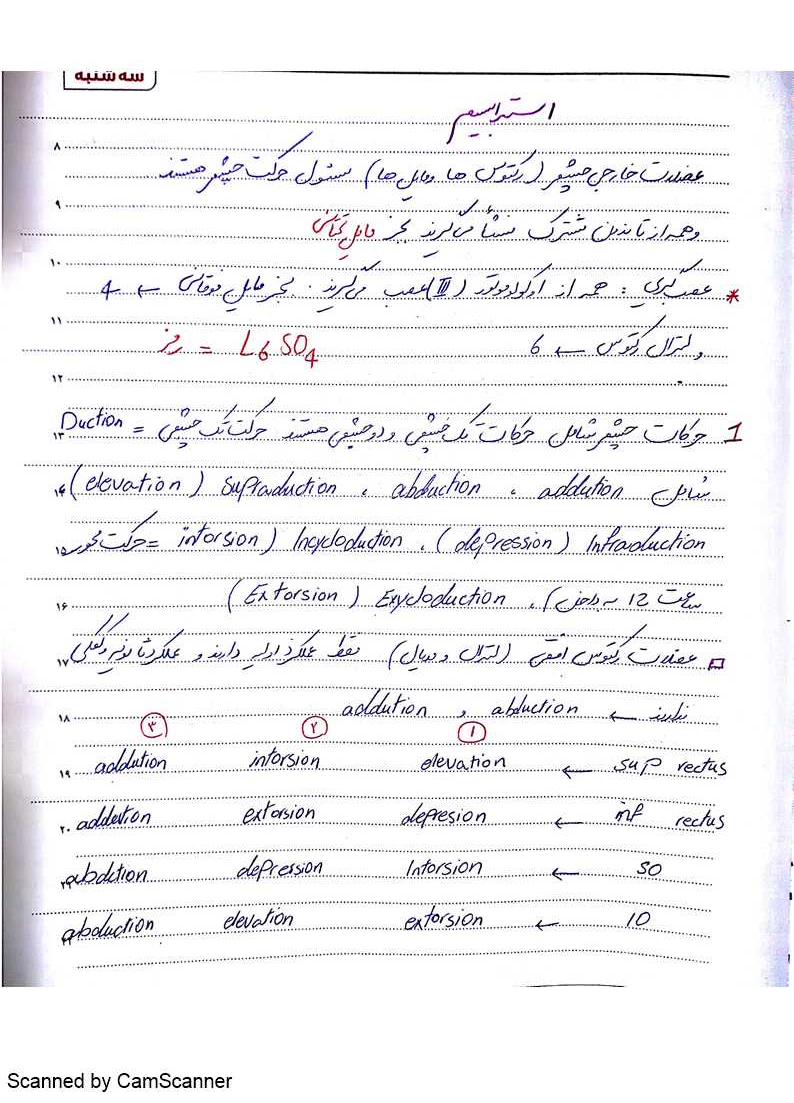 سه شنبه
استرابیسم
۸
عضلات خارجی چشم (رکتوس ها و مایل ها) مسئول حرکت چشم هستند
۹
و همه از تاندون مشترک منشأ می گیرند بجز مایل تحتانی
۱۰
* عصب گیری : همه از اوکولوموتور (III) عصب می گیرند . بجز مایل فوقانی ← 4
۱۱
و لترال رکتوس ← 6 رمز = L6 SO4
۱۲
1 حرکات چشم شامل حرکات تک چشمی و دو چشمی هستند حرکت تک چشمی = Duction
۱۳
شامل addution ، abduction ، Supraduction (elevation)
۱۴
Infraduction (depression) ، Incycloduction (intorsion = حرکت محور
۱۵
ساعت 12 به داخل) ، Exycloduction (Extorsion)
۱۶
عضلات رکتوس افقی (لترال و مدیال) فقط عملکرد اولیه دارند و عملکرد ثانویه و
۱۷
ندارند ← abduction و addution
۱۸
۱ ۲ ۳
sup rectus ← elevation intorsion addution
۱۹
inf rectus ← depresion extorsion addution
۲۰
SO ← Intorsion depression abdction
۲۱
IO ← extorsion elevation abduction
Scanned by CamScanner